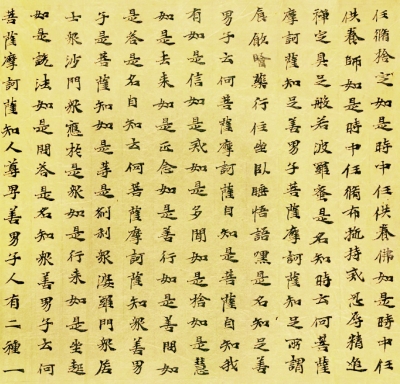 任脩捨定如是時中任供養佛如是時中任
供養師如是時中任脩布施持戒忍辱精進
禪定具足般若波羅蜜是名知時云何菩薩
摩訶薩知足善男子菩薩摩訶薩知足所謂
食飲噉藥行住坐臥睡悟語嘿是名知足善
男子云何菩薩摩訶薩自知是菩薩自知我
有如是信如是戒如是多聞如是捨如是慧
如是去來如是正念如是善行如是善問如
是答是名自知云何菩薩摩訶薩知眾善男
子是菩薩知如是等是剎利眾婆羅門眾居
士眾沙門眾應於是眾如是行來如是坐起
如是說法如是問答是名知眾善男子云何
菩薩摩訶薩知人尊卑善男子人有二種一